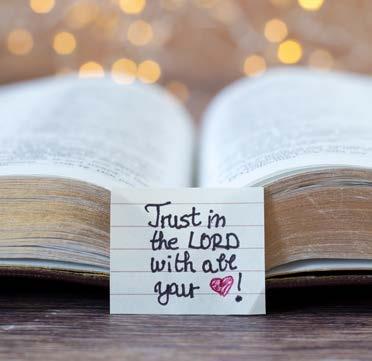 Trust in
the LORD
with all
your ❤!